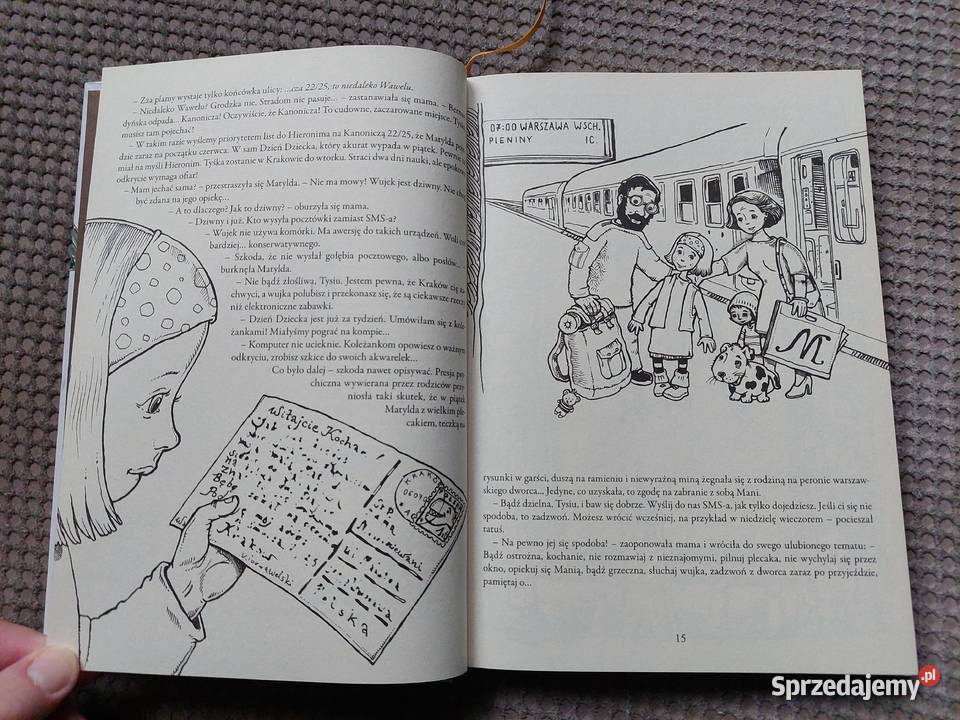 – Zza plamy wystaje tylko końcówka ulicy: ...cza 22/25, to niedaleko Wawelu.
– Niedaleko Wawelu? Grodzka nie. Stradom nie pasuje... – zastanawiała się mama. –
dyńska odpada... Kanonicza! Oczywiście, że Kanonicza! To cudowne, zaczarowane miejsce. Tysiu,
musisz tam pojechać!
– W takim razie wyślemy priorytetem list do Hieronima na Kanoniczą 22/25, że Matylda
dzie zaraz na początku czerwca. W sam Dzień Dziecka, który akurat wypada w piątek. Pewnie
miał na myśli Hieronim. Tyśka zostanie w Krakowie do wtorku. Straci dwa dni nauki, ale epokowe
odkrycie wymaga ofiar!
– Mam jechać sama? – przestraszyła się Matylda. – Nie ma mowy! Wujek jest dziwny. Nie chcę
być zdana na jego opiekę...
– A to dlaczego? Jak to dziwny? – oburzyła się mama.
– Dziwny i już. Kto wysyła pocztówki zamiast SMS-a?
– Wujek nie używa komórki. Ma awersję do takich urządzeń. Woli coś
bardziej... konserwatywnego.
– Szkoda, że nie wysłał gołębia pocztowego, albo posłów...
burknęła Matylda.
– Nie bądź złośliwa, Tysiu. Jestem pewna, że Kraków cię za-
chwyci, a wujka polubisz i przekonasz się, że są ciekawsze rzeczy
niż elektroniczne zabawki.
– Dzień Dziecka jest już za tydzień. Umówiłam się z kole-
żankami! Miałyśmy pograć na kompie...
– Komputer nie ucieknie. Koleżankom opowiesz o ważnym
odkryciu, zrobisz szkice do swoich akwarelek...
Co było dalej – szkoda nawet opisywać. Presja psy-
chiczna wywierana przez rodziców przy-
niosła taki skutek, że w piątek
Matylda z wielkim ple-
cakiem, teczką na
Witajcie Kocha
Kraków
Polska
07:00 WARSZAWA WSCH.
PIENINY IC.
M
rysunki w garści, duszą na ramieniu i niewyraźną miną żegnała się z rodziną na peronie warszaw-
skiego dworca... Jedyne, co uzyskała, to zgodę na zabranie z sobą Mani.
– Bądź dzielna, Tysiu, i baw się dobrze. Wyślij do nas SMS-a, jak tylko dojedziesz. Jeśli ci się nie
spodoba, to zadzwoń. Możesz wrócić wcześniej, na przykład w niedzielę wieczorem – pocieszał
tatuś.
– Na pewno jej się spodoba! – zaoponowała mama i wróciła do swego ulubionego tematu: –
Bądź ostrożna, kochanie, nie rozmawiaj z nieznajomymi, pilnuj plecaka, nie wychylaj się przez
okno, opiekuj się Manią, bądź grzeczna, słuchaj wujka, zadzwoń z dworca zaraz po przyjeździe,
pamiętaj o...
15
Sprzedajemy.pl